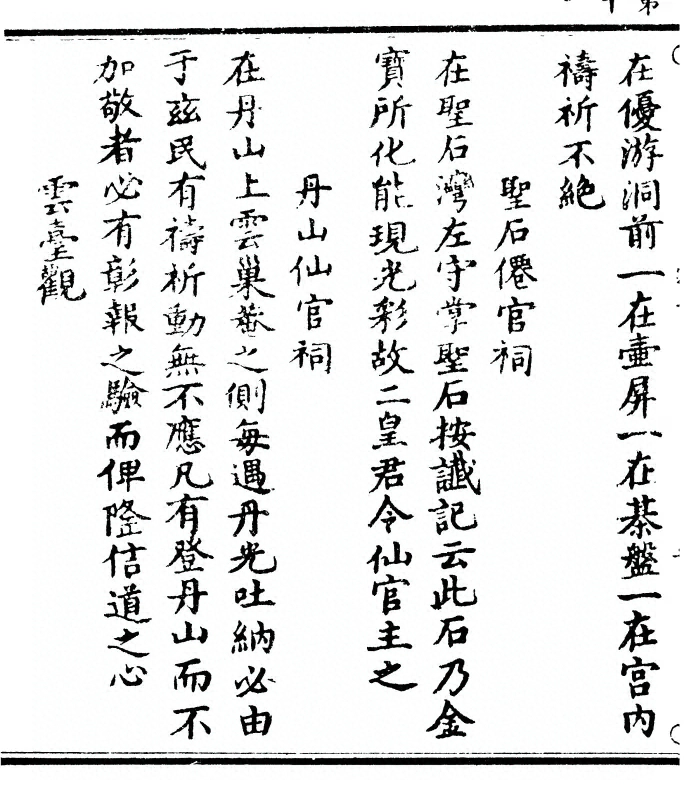 在優游洞前一在壷屏一在棊盤一在宮内
禱祈不絶
聖石僊官祠
在聖石灣左守掌聖石按讖記云此石乃金
寶所化能現光彩故二皇君令仙官主之
丹山仙官祠
在丹山上雲巢菴之側每遇丹光吐納必由
于茲民有禱祈動無不應凡有登丹山而不
加敬者必有彰報之驗而俾隆信道之心
雲臺觀